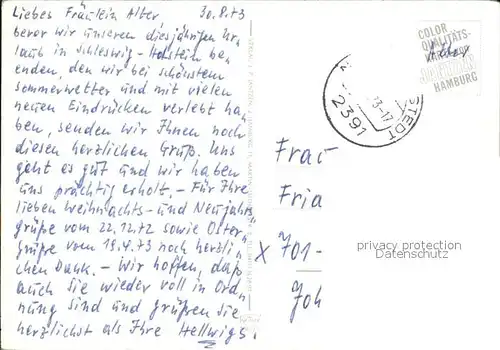 Liebes Fräulein Alber, 30.8.73
bevor wir unseren diesjährigen Ur,
laub in Schleswig-Holstein be,
enden, den wir bei schönstem
Sommerwetter und mit vielen
neuen Eindrücken verlebt ha,
ben, senden wir Ihnen noch
diesen herzlichen Gruß. Uns
geht es gut und wir haben
uns prächtig erholt. - Für Ihre
lieben Weihnachts- und Neujahrs,
grüße vom 22.12.72 sowie Oster,
grüße vom 19.4.73 noch herzli,
chen Dank. - Wir hoffen, daß
auch Sie wieder voll in Ord,
nung sind und grüßen Sie
herzlichst als Ihre Hellwigs.
COLOR
QUALITÄTS-
HAMBURG
2391
STEDT
Frau
Fria
x 701-
Joh
privacy protection
Datenschutz